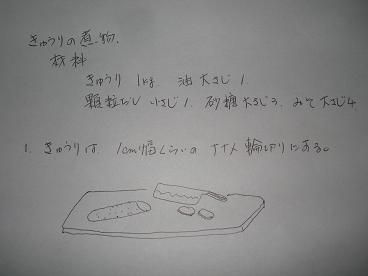 きゅうりの煮物.
材料
きゅうり 1kg. 油 大さじ1.
顆粒だし 小さじ1. 砂糖大さじ3. みそ大さじ4.
1. きゅうりは 1cm幅くらいの ナナメ輪切りにする。